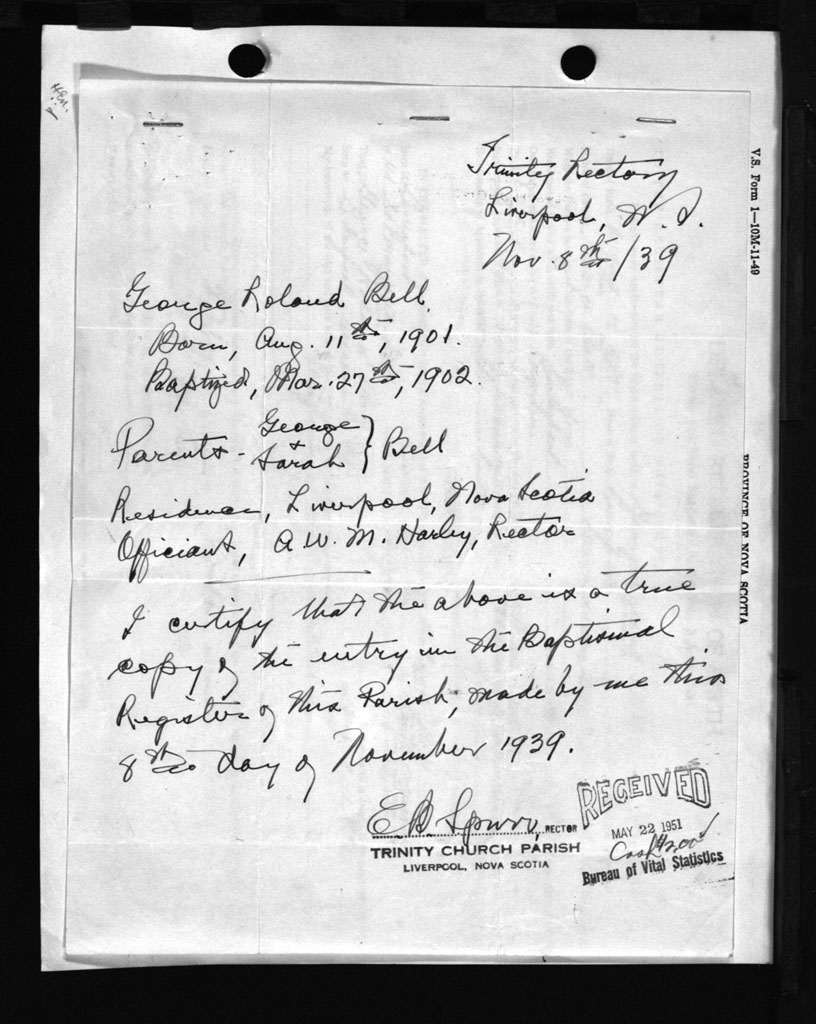 Trinity Rectory
Liverpool, N.S.
Nov. 8th/39
George Roland Bell
Born, Aug. 11th, 1901.
Baptized, Mar. 27th, 1902.
Parents - George + Sarah } Bell
Residence, Liverpool, Nova Scotia
Officiant, A W. M. Harley, Rector
I certify that the above is a true
copy of the entry in the Baptismal
Register of this Parish, made by me this
8th day of November 1939.
E.B. Spurr, RECTOR
TRINITY CHURCH PARISH
LIVERPOOL, NOVA SCOTIA
RECEIVED
MAY 22 1951
Cash $2.00
Bureau of Vital Statistics
V.S. Form 1—10M-11-49
PROVINCE OF NOVA SCOTIA